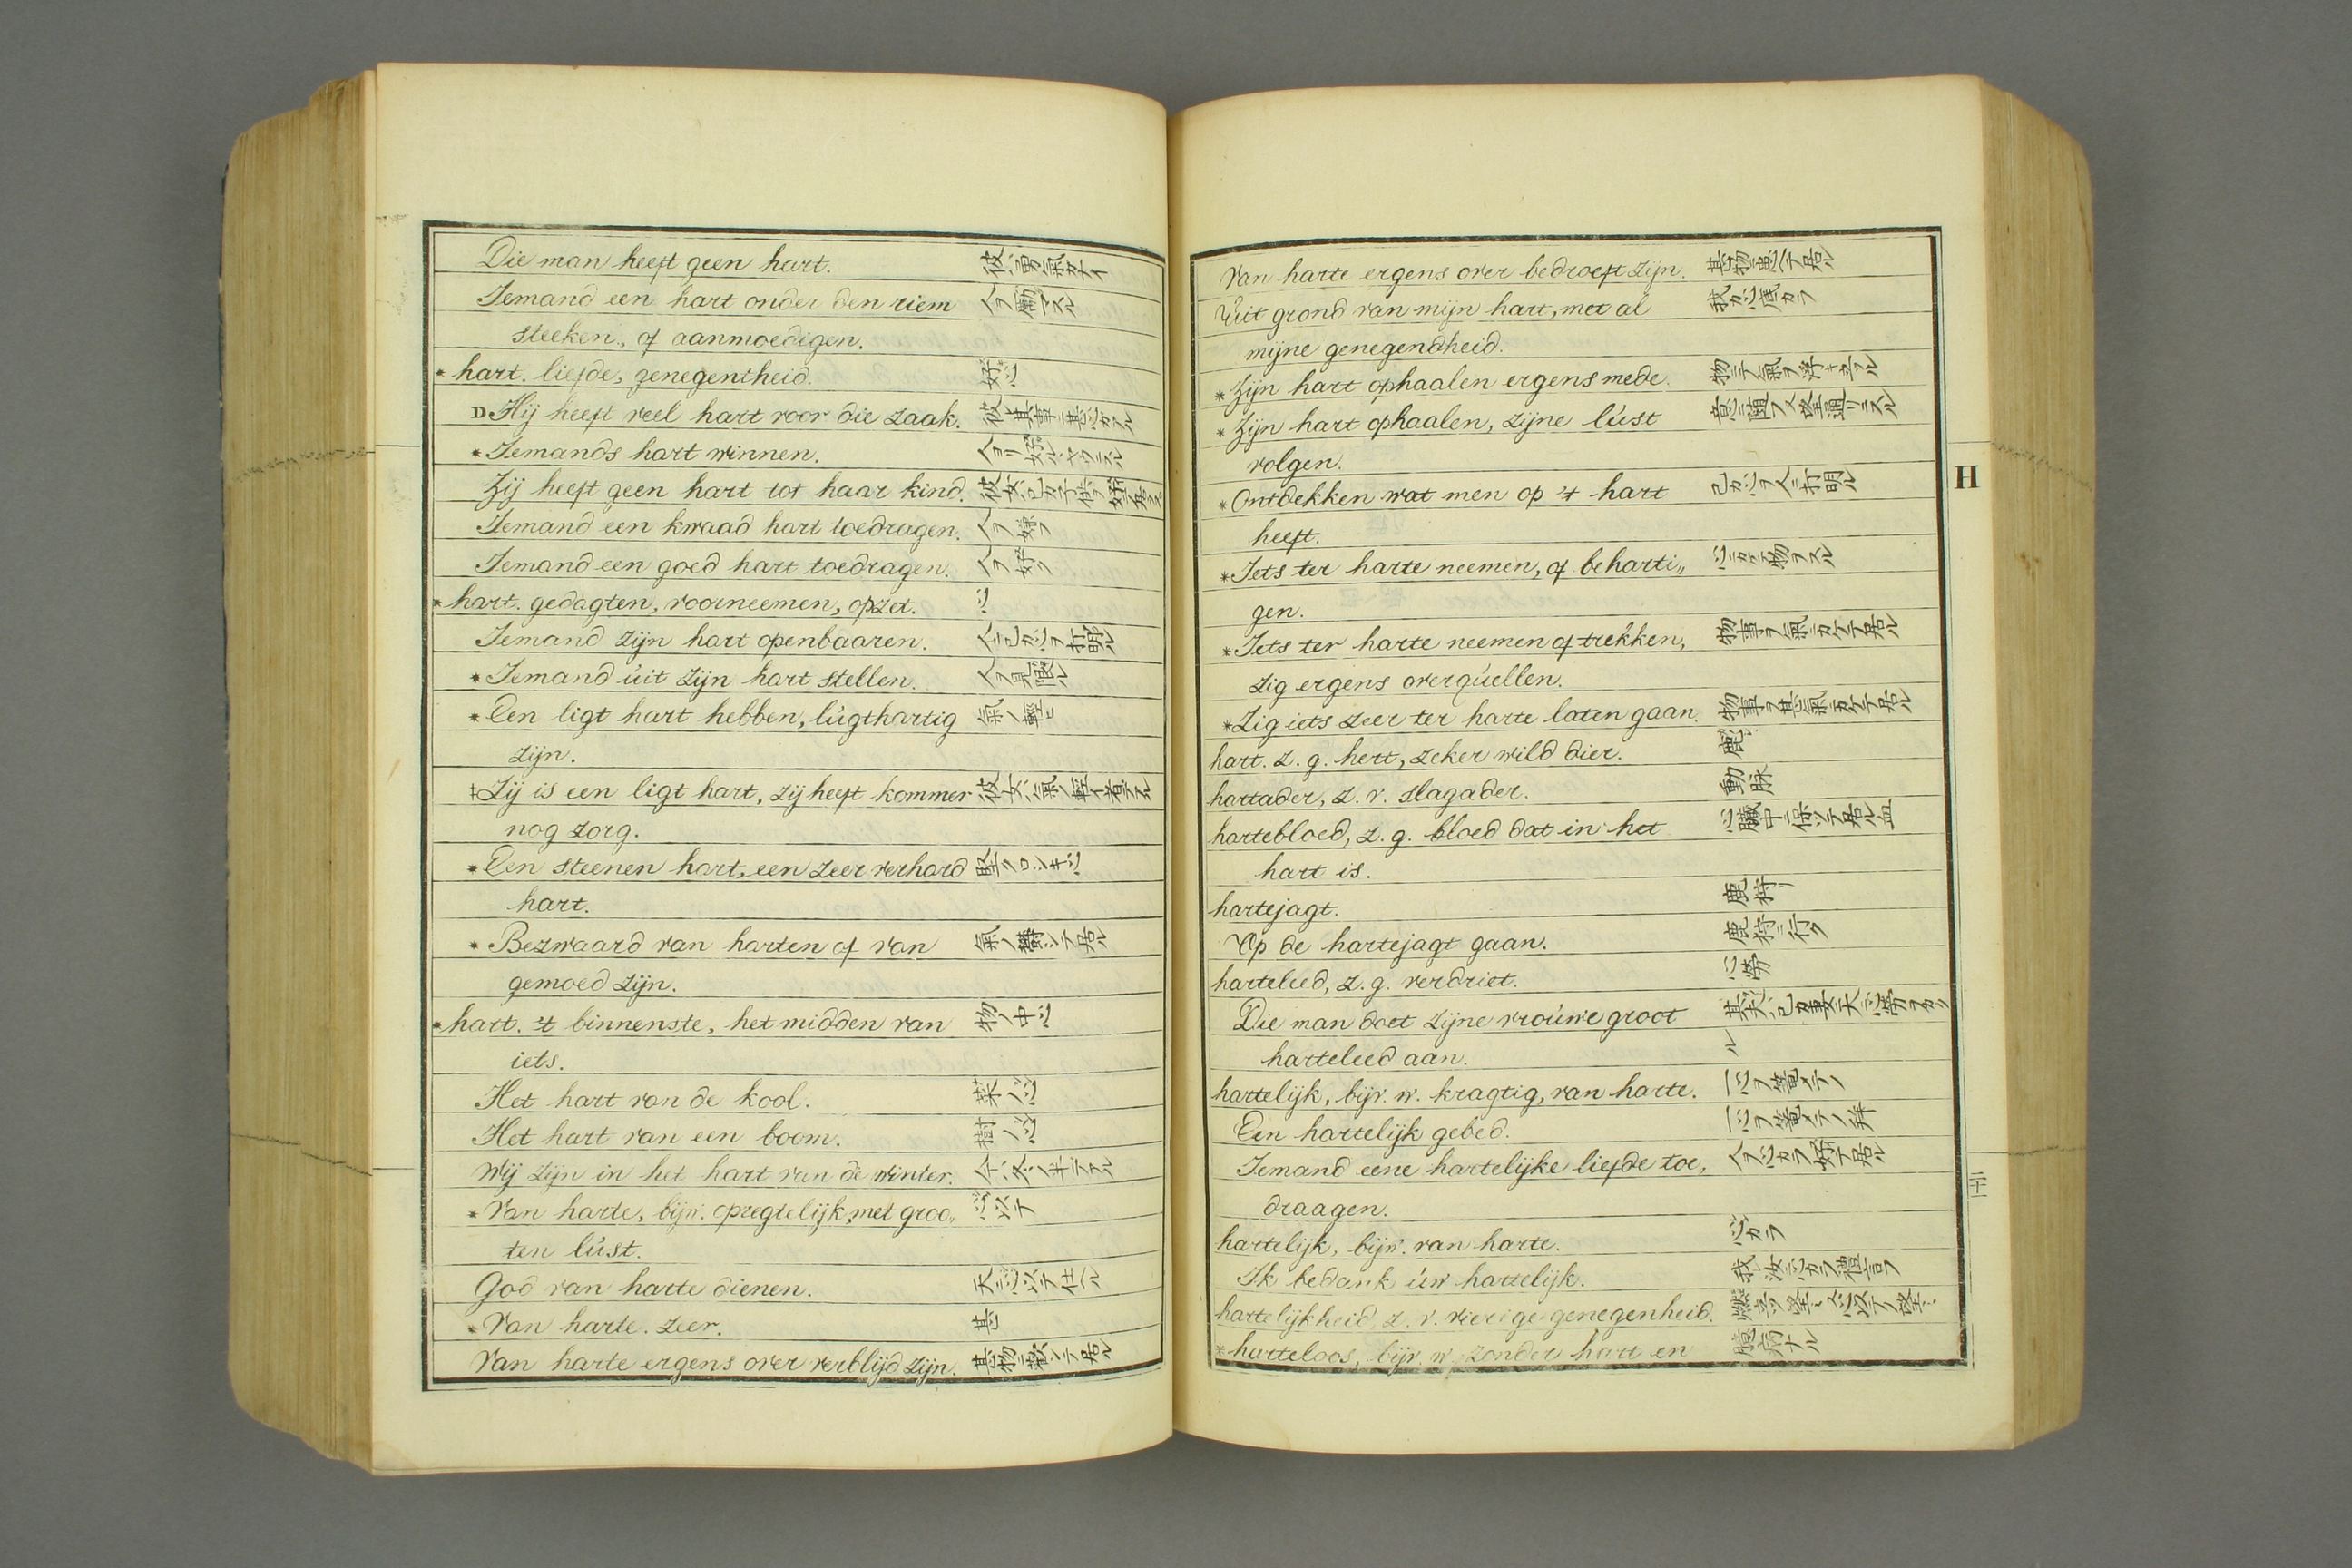 Die man heeft geen hart. 彼ハ勇氣カナイ
Iemand een hart onder den riem 人ヲ勵マスル
steeken, of aanmoedigen.
* hart. liefde, genegentheid. 好ム心
D Hij heeft veel hart voor die zaak.
* Iemands hart winnen.
Zij heeft geen hart tot haar kind.
Iemand een kwaad hart toedragen. 人ヲ嫌フ
Iemand een goed hart toedragen. 人ヲ好ク
* hart. gedagten, voorneemen, opzet. 心
Iemand zijn hart openbaaren. 人ニ己カ心ヲ打明ル
* Iemand uit zijn hart stellen. 人ヲ見限ル
* Een ligt hart hebben, lugthartig 氣ノ輕ヒ
zijn.
‡ Zij is een ligt hart, zij heeft kommer
nog zorg.
* Een steenen hart, een zeer verhard
hart.
* Bezwaard van harten of van 氣ノ欝シテ居ル
gemoed zijn.
* hart. 't binnenste, het midden van 物ノ中心
iets.
Het hart van de kool. 菜ノ心
Het hart van een boom. 樹ノ心
Wij zijn in het hart van de winter. 今ハ冬ノ半テアル
* Van harte, bijw. opregtelijk, met groo„ 心ヲ以テ
ten lust.
God van harte dienen. 天ニ心ヲ以テ仕ヘル
* Van harte. zeer. 甚
Van harte ergens over verblijd zijn. 甚物ニ歓ンテ居ル
Van harte ergens over bedroeft zijn.
Uit grond van mijn hart, met al 我カ心底カラ
mijne genegendheid.
* Zijn hart ophaalen ergens mede.
* Zijn hart ophaalen, zijne lust
volgen.
* Ontdekken wat men op 't hart 己カ心ヲ人ニ打明ル
heeft.
* Iets ter harte neemen, of beharti„ 心ニカケテ物ヲスル
gen.
* Iets ter harte neemen of trekken, 物事ヲ氣ニカケテ居ル
zig ergens overquellen.
* Zig iets zeer ter harte laten gaan. 物事ヲ甚氣ニカケテ居ル
hart. z. g. hert, zeker wild dier. 鹿
hartader, z. v. slagader. 動脉
hartebloed, z. g. bloed dat in het 心臓中ニ保ツテ居ル血
hart is.
hartejagt. 鹿狩リ
Op de hartejagt gaan. 鹿狩ニ行ク
harteleed, z. g. verdriet. 心勞
Die man doet zijne vrouwe groot
harteleed aan.
hartelijk, bijv. w. kragtig, van harte. 一心ヲ篭メテノ
Een hartelijk gebed.
Iemand eene hartelijke liefde toe, 人ヲ心カラ好テ居ル
draagen.
hartelijk, bijw. van harte. 心カラ
Ik bedank uw hartelijk. 我汝ニ心カラ禮言フ
hartelijkheid, z. v. vierige genegenheid.
* harteloos, bijv. w. zonder hart en 臆病ナル
H